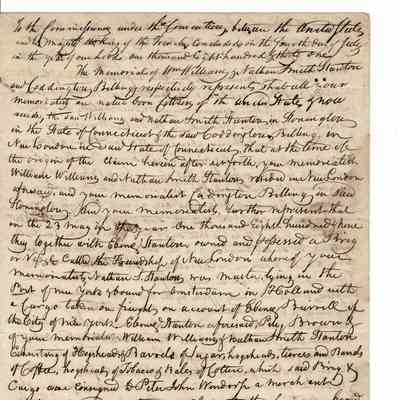 To the Commissioners under the Convention between the United States
and his Majesty the King of the French, concluded on the fourth day of July
in the year of our Lord one thousand eight hundred & thirty one
The Memorial of Wm Williams, Nathan Smith Stanton
and Coddington Billings respectfully represents that all your
memorialists are native born Citizens of the United States & now
reside, the said Williams and Nathan Smith Stanton, in Stonington
in the State of Connecticut & the said Coddington Billings, in
New London in said State of Connecticut, that at the time of
the origin of the claim herein after set forth, your memorialists
William Williams and Nathan Smith Stanton resided in New London
aforesaid and your memorialist Coddington Billings in said
Stonington. And your memorialists further represent that
on the 23 May in the year One thousand eight hundred &
they together with Ebenr Stanton owned and possessed a Brig
or Vessel Called the Friendship of New London whereof your
memorialist Nathan S. Stanton was master, lying in the
Port of New York & bound for Amsterdam in Holland with
a Cargo taken on freight on account of Ebenr Burrill of
the City of New York, Ebenr Stanton aforesaid, Brown &
of your memorialists William Williams & Nathan Smith Stanton
Consisting of Hogsheads & Barrels of Sugar, hogsheads, tierces and Barrels
of Coffee, hogsheads of Tobacco & Bales of Cotton, which said Brig &
Cargo were consigned to Peter John a merchant